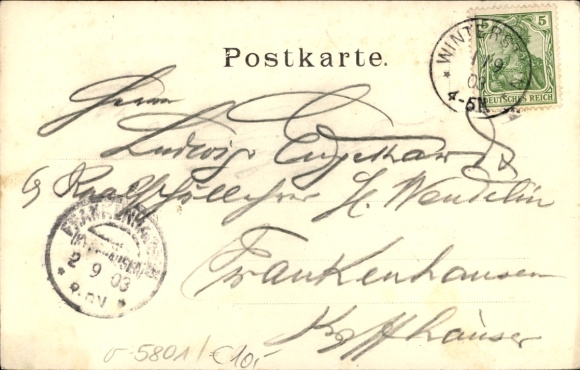 Postkarte.
5
DEUTSCHES REICH
WINTERB
1 9
03
4-5N
Herrn
Ludwig Engelhardt
Realschüllehrer H. Wendelin
Frankenhausen
Kyffhäuser
FRANKENHAUSEN
2 9 03
5801